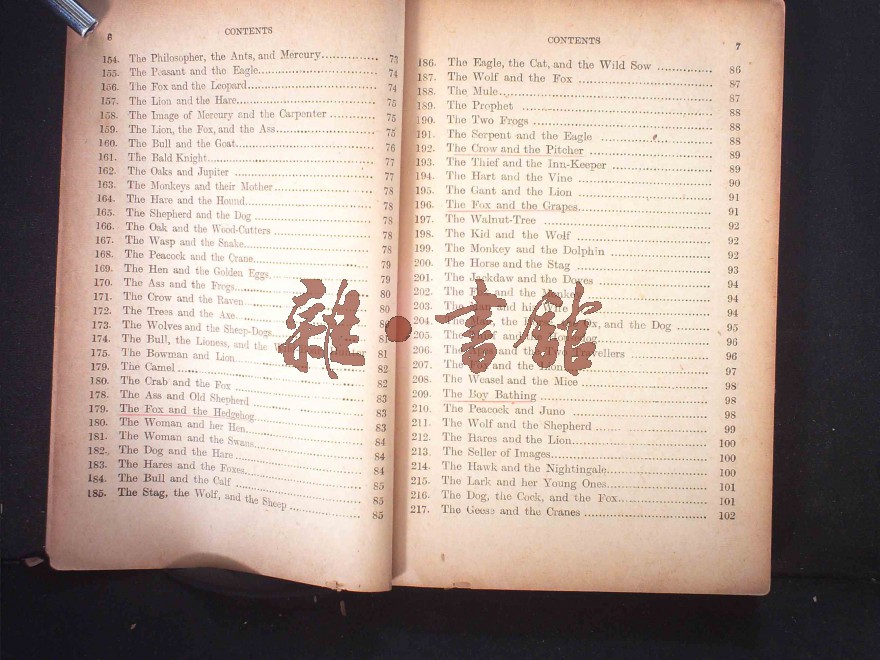 6
CONTENTS
154. The Philosopher, the Ants, and Mercury 73
155. The Peasant and the Eagle 74
156. The Fox and the Leopard 74
157. The Lion and the Hare 75
158. The Image of Mercury and the Carpenter 75
159. The Lion, the Fox, and the Ass 75
160. The Bull and the Goat 76
161. The Bald Knight 77
162. The Oaks and Jupiter 77
163. The Monkeys and their Mother 78
164. The Hare and the Hound 78
165. The Shepherd and the Dog 78
166. The Oak and the Wood-Cutters 78
167. The Wasp and the Snake 78
168. The Peacock and the Crane 79
169. The Hen and the Golden Eggs 79
170. The Ass and the Frogs 80
171. The Crow and the Raven 80
172. The Trees and the Axe
173. The Wolves and the Sheep-Dogs
174. The Bull, the Lioness, and the 81
175. The Bowman and Lion 81
179. The Camel 82
180. The Crab and the Fox 82
178. The Ass and Old Shepherd 83
179. The Fox and the Hedgehog 83
180. The Woman and her Hen 83
181. The Woman and the Swans 84
182. The Dog and the Hare 84
183. The Hares and the Foxes 84
184. The Bull and the Calf 85
185. The Stag, the Wolf, and the Sheep 85
CONTENTS
7
186. The Eagle, the Cat, and the Wild Sow 86
187. The Wolf and the Fox 87
188. The Mule 87
189. The Prophet 88
190. The Two Frogs 88
191. The Serpent and the Eagle 88
192. The Crow and the Pitcher 89
193. The Thief and the Inn-Keeper 89
194. The Hart and the Vine 90
195. The Gant and the Lion 91
196. The Fox and the Grapes 91
197. The Walnut-Tree 92
198. The Kid and the Wolf 92
199. The Monkey and the Dolphin 92
200. The Horse and the Stag 93
201. The Jackdaw and the Doves 94
202. The and the Monkey 94
203. The Man and his Wife 94
204. The Man, the Ox, and the Dog 95
205. The and the 96
206. The and the Two Travellers 96
207. The and the Lion 97
208. The Weasel and the Mice 98
209. The Boy Bathing 98
210. The Peacock and Juno 98
211. The Wolf and the Shepherd 99
212. The Hares and the Lion 100
213. The Seller of Images 100
214. The Hawk and the Nightingale 100
215. The Lark and her Young Ones 101
216. The Dog, the Cock, and the Fox 101
217. The Geese and the Cranes 102
雜·書館